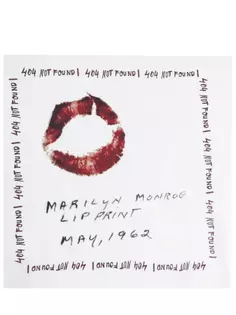 404 NOT FOUND! 404 NOT FOUND! 404 NOT FOUND! 404 NOT FOUND!
404 NOT FOUND! 404 NOT FOUND! 404 NOT FOUND!
MARILYN MONROE
LIP PRINT
MAY, 1962
404 NOT FOUND! 404 NOT FOUND! 404 NOT FOUND!
404 NOT FOUND! 404 NOT FOUND! 404 NOT FOUND!